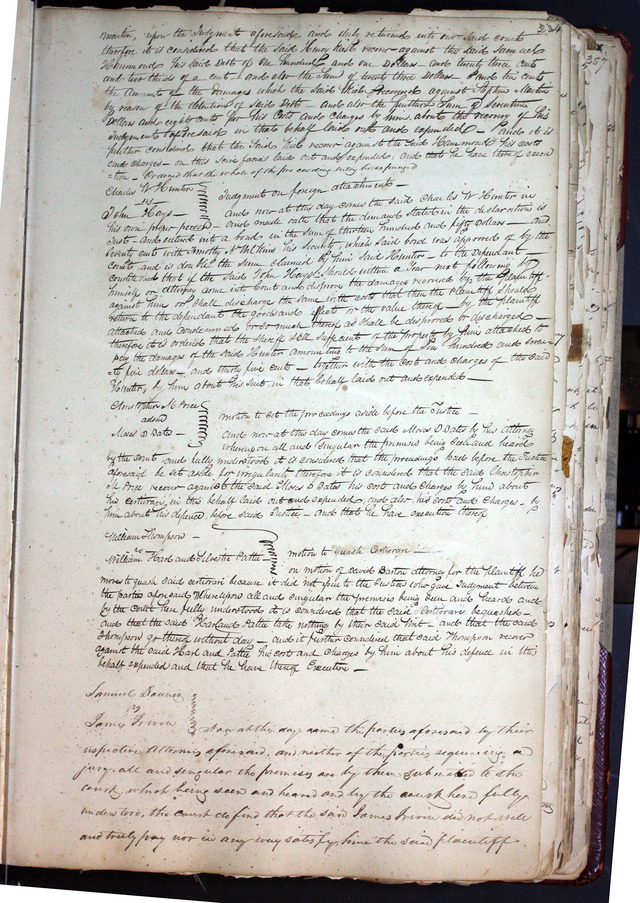 upon the Judgment aforesaid and duly returned into our said court
therefore it is considered that the said Henry Hust recover against the said Samuel
Hammond his said Debt of One hundred and one Dollars and twenty three cents
and two thirds of a cent and also the Sum of twenty three Dollars and ten cents
the amount of the Damages which the Said Hust recovered against Stephen
by reason of the detention of said Debt and also the further Sum of Seventeen
Dollars and eighty cents for his Costs and Charges by him about the recovery of his
Judgment aforesaid in that behalf laid out and expended and it is
further considered that the said Hust recover against the said Hammond his costs
and charges on this Scire facias laid out and expended, and that he have thereof execu
tion Ordered that the whole of the proceeding be expunged
234
357
Charles W Hunter
vs
John Hays
Judgment on foreign attachment
And now at this day comes the said Charles W Hunter in
his own proper person and made oath that the demand stated in the declaration is
Just and entered into a bond in the Sum of thirteen hundred and fifty Dollars and
Seventy cents with Timothy his Security, which said bond was approved of by the
Court and is double the Sum claimed by him said Hunter to the Defendant
conditioned that if the said John Hays should within a Year next following by
himself or attorney come into Court and disprove the damages recovered by the Plaintiff
against him or shall discharge the same with costs that then the Plaintiff should
return to the defendant the goods and effects or the value thereof by the plaintiff
attached and condemned or so much thereof as shall be disproved or discharged
therefore it is ordered that the Sheriff sell sufficient of the property by him attached to
pay the damages of the said Hunter amounting to the sum of Six hundred and seven
ty five dollars and thirty five cents together with the cost and charges of the said
Hunter, by him about his suit in that behalf laid out and expended
Christopher M Price
adsm
Moses D Bates
motion to set the proceedings aside before the Justice
And now at this day comes the said Moses D Bates by his Attorney
whereupon all and Singular the premises being Seen and heard
by the Court and fully understood it is considered that the proceedings had before the Justice
aforesaid be set aside for irregularity therefore it is considered that the said Christopher
M Price recover against the said Moses D Bates his cost and charges by him about
his certiorari in this behalf laid out and expended, and also his cost and charges by
him about his defence before said Justice and that he have execution thereof
William Thompson
vs
William Harl and Silvester Pattie
motion to quash Certiorari
on motion of David Barton attorney for the plaintiff he
moves to quash said certiorari because it did not issue to the Justice who gave Judgment between
the parties aforesaid Whereupon all and singular the premises being seen and heard and
by the Court here fully understood it is considered that the said Certiorari be quashed
and that the said Harl and Pattie take nothing by their said writ and that the said
Thompson go thereof without day and it further considered that said Thompson recover
against the said Harl and Pattie his cost and charges by him about his defence in this
behalf expended and that he have thereof Execution
Samuel
vs
James Irwin
Now at this day came the parties aforesaid by their
respective Attornies aforesaid, and neither of the parties requiring a
jury all and singular the premises are by them submitted to the
court, which being seen and heard and by the court here fully
understood, the court do find that the said James Irwin did not well
and truly pay nor in any way satisfy him the said plaintiff